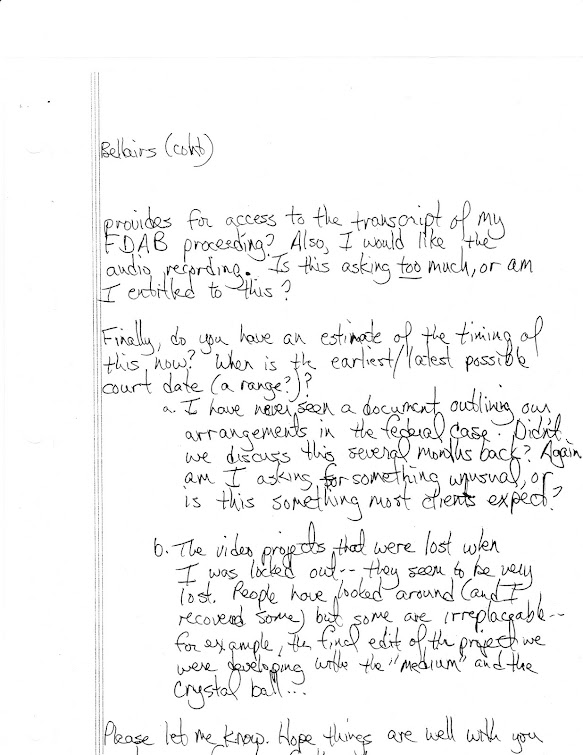 Bellairs (cont)
provides for access to the transcript of my
FDAB proceeding? Also, I would like the
audio recording. Is this asking too much, or am
I entitled to this?
Finally, do you have an estimate of the timing of
this, now? When is the earliest/latest possible
court date (a range?)?
a. I have never seen a document outlining our
arrangements in the federal case. Didn't
we discuss this several months back? Again
am I asking for something unusual, or
is this something most clients expect?
b. The video projects that were lost when
I was locked out-- they seem to be very
lost. People have looked around (and I
recovered some) but some are irreplaceable--
for example, the final edit of the project we
were developing with the "medium" and the
crystal ball...
Please let me know. Hope things are well with you